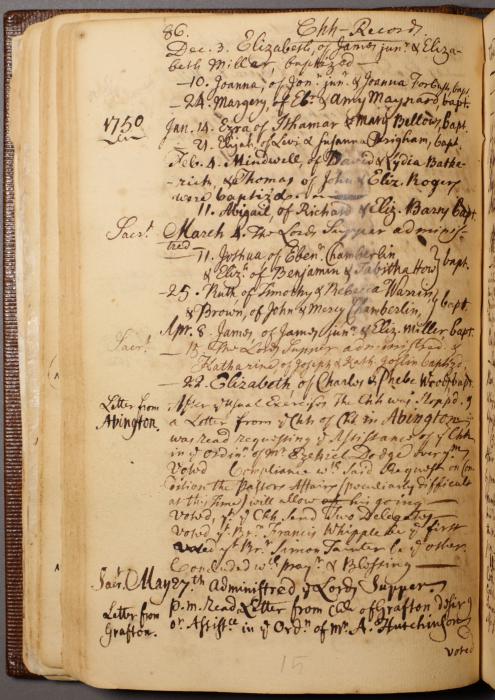 86. Chh-Records
Dec. 3. Elizabeth, of James junr & Eliza-
beth Miller, baptizd —
—10. Joanna, of Jonn junr & Joanna Forbush, bapt.
—24. Margery, of Ebr & Amy Maynard bapt.
1750 Jan. 14. Ezra of Ithamar & Mary Bellows, bapt.
—21. Elijah, of Levi & Susanna Brigham, bapt.
Feb. 4. Mindwell, of David & Lydia Bathe-
rick, & Thomas of John & Eliz. Rogers
were baptizd
11. Abigail, of Richard & Eliz. Barry bapt.
Sacrt March 4. The Lords Supper adminis-
tred
—11. Joshua of Ebenr Chamberlin
& Elizh of Benjamin & Tabitha How } bapt.
—25. Ruth of Timothy & Rebecca Warrin,
& Brown, of John & Mercy Chamberlin, } bapt.
Apr. 8. James of James junr & Eliz. Miller bapt.
Sacrt. — 15 The Lords Supper administred. &
Katharine, of Joseph & Kath. Goslin baptizd.
—22. Elizabeth of Charles & Phebe Wood, bapt.
Letter from After ye usual Exercises the Chh was stoppd. &
Abington. a Letter from ye Chh of Cht in Abington
was read requesting ye Assistance of ys Chh
in ye Ordinn of Mr Ezekiel Dodge over ym
Voted Compliance wth said Request on Con
dition the Pastors Affairs (peculiarly difficult
at this time) will allow of his going —
Voted yt ye Chh send Two Delegates
Voted yt Br. Francis Whipple be ye first
Voted yt Br. Simon Tainter be ye other.
Concluded wth prayr & Blessing —
Sacrt. May 27.th Administred ye Lords Supper
Letter from P.m. read Letter from Chh of Grafton desirg
Grafton. or Assistce in ye Ordn of Mr A. Hutchinson
voted
15